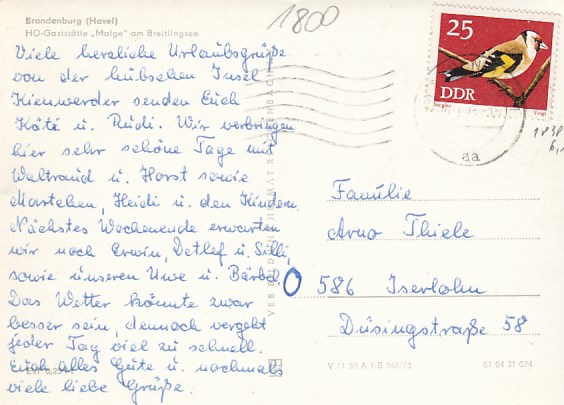 Brandenburg (Havel)
HO-Gaststätte „Malge" am Breitlingsee
1800
Viele herzliche Urlaubsgrüße
von der hübschen Insel
Kienwerder senden Euch
Käte u. Rudi. Wir verbringen
hier sehr schöne Tage mit
Waltraud u. Horst sowie
Martchen, Heidi u. den Kindern.
Nächstes Wochenende erwarten
wir noch Erwin, Detlef u. Silli,
sowie unseren Uwe u. Bärbel
Das Wetter könnte zwar
besser sein, dennoch vergeht
jeder Tag viel zu schnell.
Euch alles Gute u. nochmals
viele liebe Grüße.
25
DDR
aa
Familie
Arno Thiele
586 Iserlohn
Düsingstraße 58
V 11 50 A 1/B 568/73
01 04 31 074